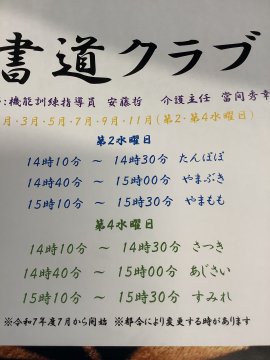 書道クラブ
:機能訓練指導員 安藤哲 介護主任 當間秀幸
月・3月・5月・7月・9月・11月(第2・第4水曜日)
第2水曜日
14時10分 ～ 14時30分 たんぽぽ
14時40分 ～ 15時00分 やまぶき
15時10分 ～ 15時30分 やまもも
第4水曜日
14時10分 ～ 14時30分 さつき
14時40分 ～ 15時00分 あじさい
15時10分 ～ 15時30分 すみれ
※令和7年度7月から開始 ※都合により変更する時があります